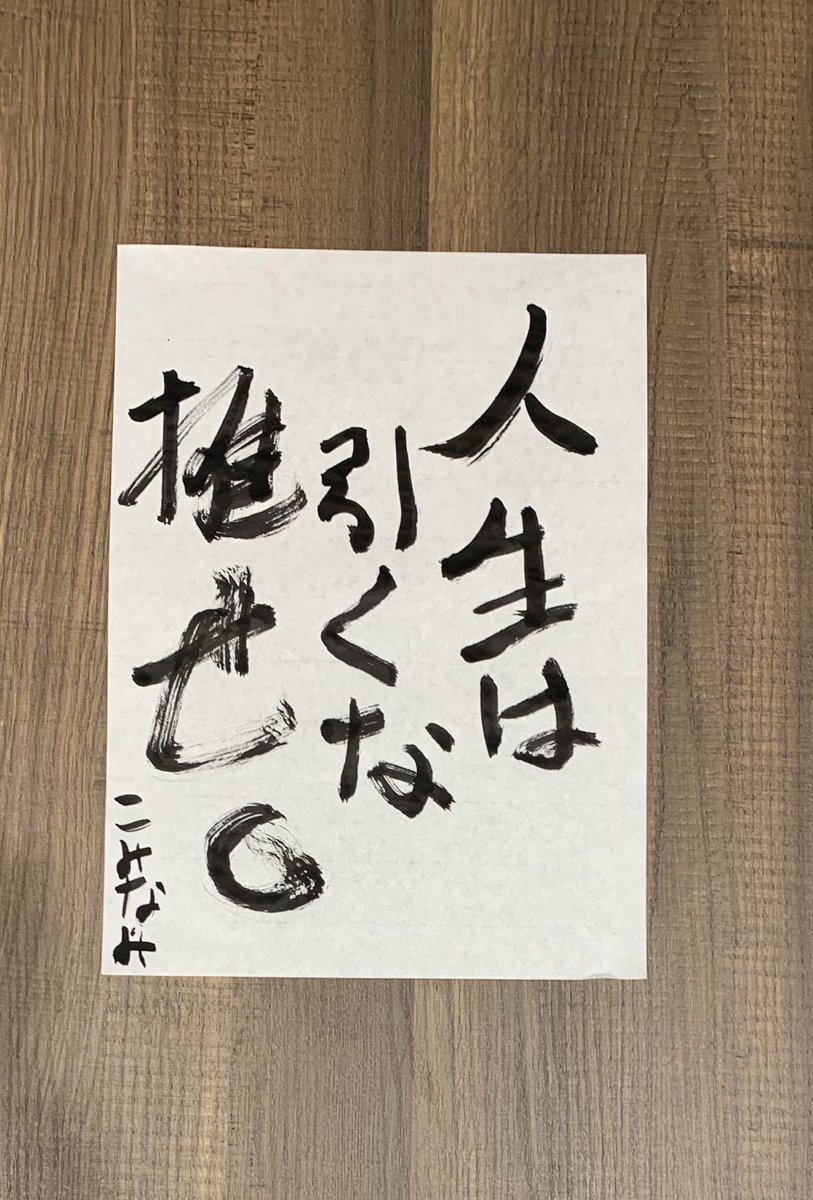 人生は
引くな
推せ。
こみなみ